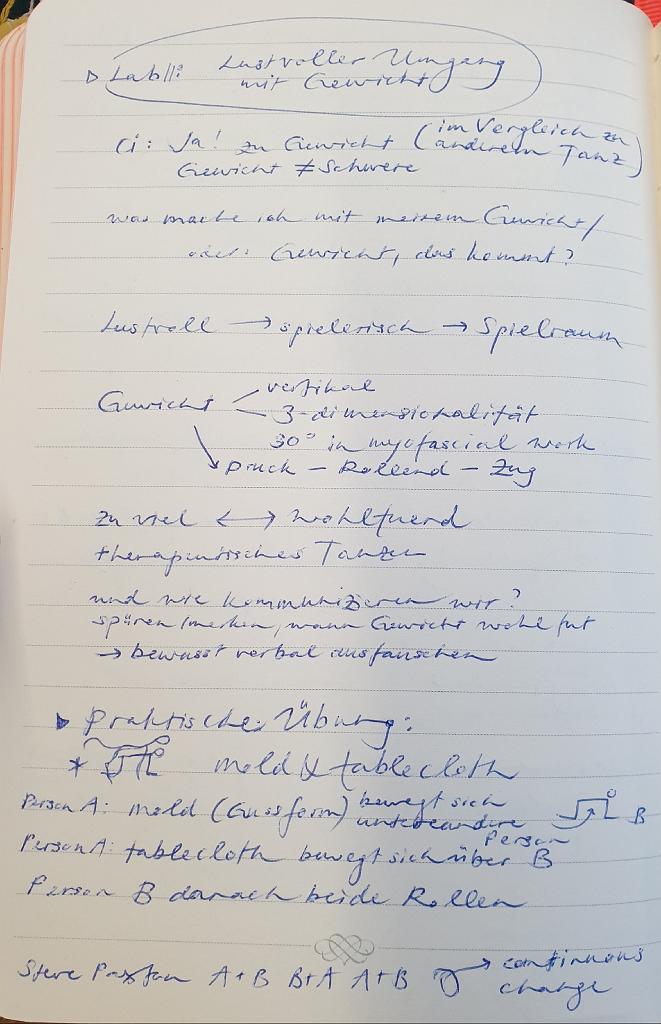 ▷ Lab II: Lustvoller Umgang
mit Gewicht
Ci: Ja! zu Gewicht (im Vergleich zu
anderem Tanz)
Gewicht ≠ Schwere
was mache ich mit meinem Gewicht/
oder: Gewicht, das kommt?
Lustvoll → spielerisch → Spielraum
Gewicht
vertikal
3-dimensionalität
30° in myofascial work
Druck - Rollend - Zug
zu viel ↔ wohltuend
therapeutisches Tanzen
und wie kommunizieren wir?
spüren/merken, wann Gewicht wohl tut
→ bewusst verbal austauschen
▶ Praktische Übung:
* mold & tablecloth
Person A: mold (Gussform) bewegt sich
unter andere
Person
B
Person A: tablecloth bewegt sich über B
Person B danach beide Rollen
Steve Paxton A+B B+A A+B → continuous
change